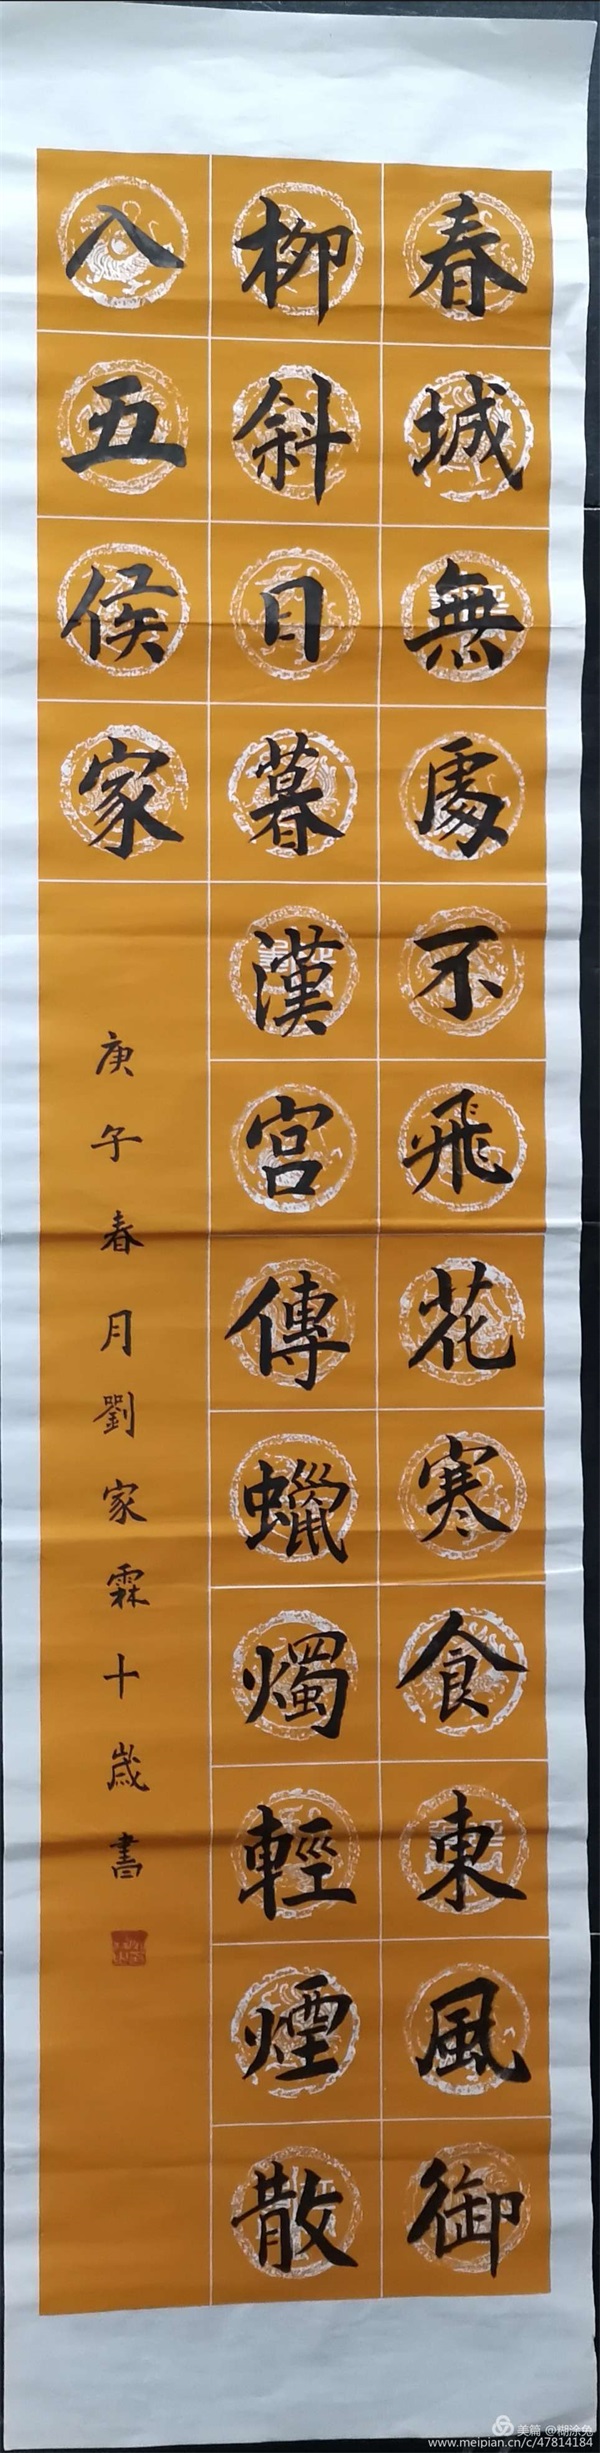 春城無處不飛花寒食東風御
柳斜日暮漢宮傳蠟燭輕煙散
入五侯家
庚午春月劉家霖十歲書
美篇 @糊涂兔
www.meipian.cn/c/47814184